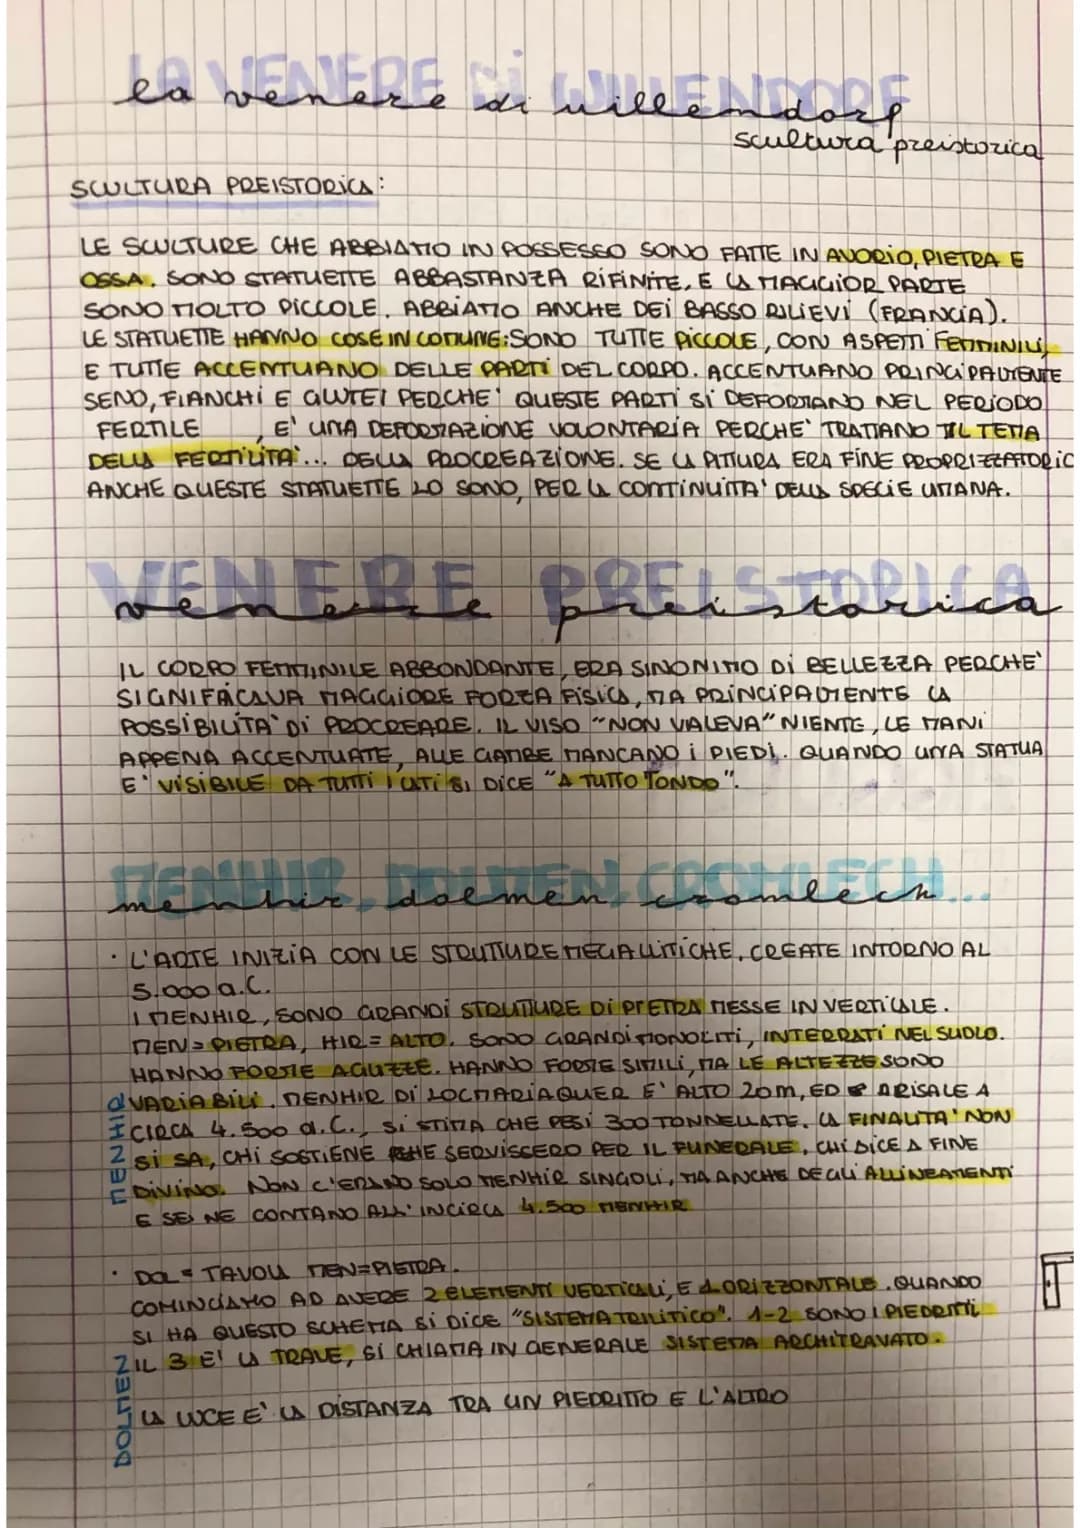 LA VENERE DI WILLENDORF
la venere di willendorf
scultura preistorica
SCULTURA PREISTORICA:
LE SCULTURE CHE ABBIAMO IN POSSESSO SONO FATTE IN AVORIO, PIETRA E
OSSA. SONO STATUETTE ABBASTANZA RIFINITE, E LA MAGGIOR PARTE
SONO MOLTO PICCOLE. ABBIAMO ANCHE DEI BASSO RILIEVI (FRANCIA).
LE STATUETTE HANNO COSE IN COMUNE: SONO TUTTE PICCOLE, CON ASPETTI FEMMINILI,
E TUTTE ACCENTUANO DELLE PARTI DEL CORPO. ACCENTUANO PRINCIPALMENTE
SENO, FIANCHI E GLUTEI PERCHE' QUESTE PARTI SI DEFORMANO NEL PERIODO
FERTILE, E' UNA DEFORMAZIONE VOLONTARIA PERCHE' TRATTANO IL TEMA
DELLA FERTILITA'... DELLA PROCREAZIONE. SE LA PITTURA ERA FINE PROPRIZZATORIC
ANCHE QUESTE STATUETTE LO SONO, PER LA CONTINUITA' DELLA SPECIE UMANA.
VENERE PREISTORICA
venere preistorica
IL CORPO FEMMINILE ABBONDANTE, ERA SINONIMO DI BELLEZZA PERCHE'
SIGNIFICAVA MAGGIORE FORZA FISICA, MA PRINCIPALMENTE LA
POSSIBILITA' DI PROCREARE. IL VISO "NON VALEVA" NIENTE, LE MANI
APPENA ACCENTUATE, ALLE GAMBE MANCANO I PIEDI. QUANDO UNA STATUA
E' VISIBILE DA TUTTI I LATI SI DICE "A TUTTO TONDO".
MENHIR, DOLMEN, CROMLECH...
menhir, dolmen, cromlech...
· L'ARTE INIZIA CON LE STRUTTURE MEGALLITICHE, CREATE INTORNO AL
5.000 a.C.
I MENHIR, SONO GRANDI STRUTTURE DI PIETRA MESSE IN VERTICALE.
MEN= PIETRA, HIR= ALTO. SONO GRANDI MONOLITI, INTERRATI NEL SUOLO.
HANNO FORME AGUZZE. HANNO FORME SIMILI, MA LE ALTEZZE SONO
VARIABILI. MENHIR DI LOCMARIAQUER E' ALTO 20m, ED ARISALE A
CIRCA 4.500 a.C., SI STIMA CHE PESI 300 TONNELLATE. LA FINALITA' NON
SI SA, CHI SOSTIENE CHE SERVISSERO PER IL FUNERALE, CHI DICE A FINE
DIVINO. NON C'ERANO SOLO MENHIR SINGOLI, MA ANCHE DEGLI ALLINEAMENTI
E SE NE CONTANO ALL'INCIRCA 4.500 MENHIR
MENHIR
· DOL= TAVOLA MEN=PIETRA.
COMINCIAMO AD AVERE 2 ELEMENTI VERTICALI, E 1 ORIZZONTALE. QUANDO
SI HA QUESTO SCHEMA SI DICE "SISTEMA TRILITICO". 1-2 SONO I PIEDRITTI
IL 3 E' LA TRAVE, SI CHIAMA IN GENERALE SISTEMA ARCHITRAVATO.
LA LUCE E' LA DISTANZA TRA UN PIEDRITTO E L'ALTRO
DOLMEN